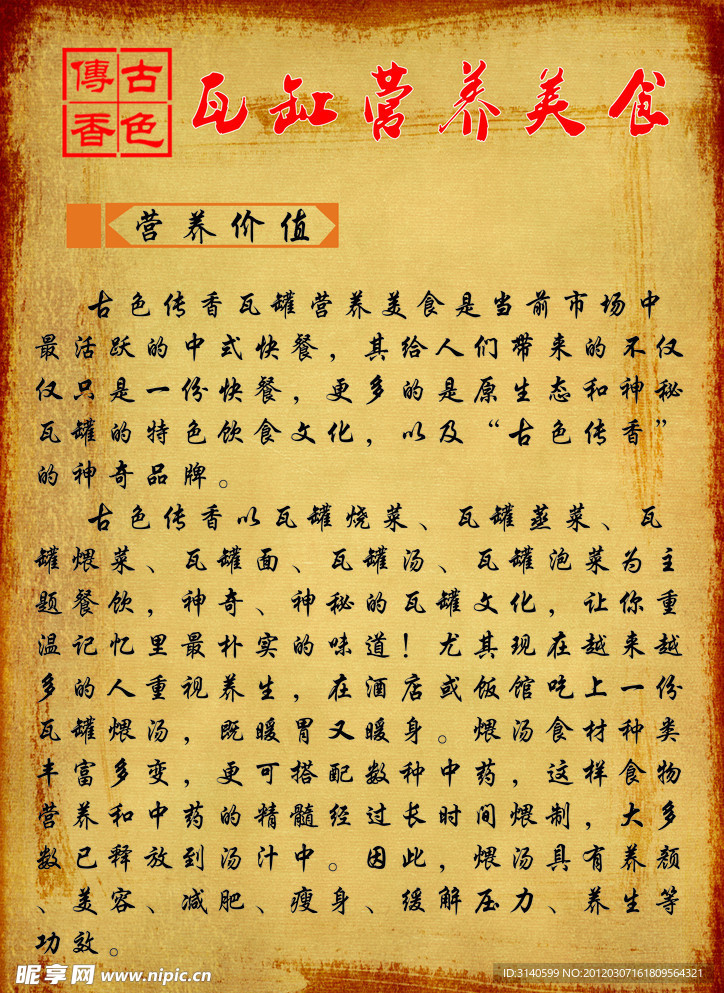 古色
傳香
瓦缸营养美食
营养价值
古色传香瓦罐营养美食是当前市场中
最活跃的中式快餐，其给人们带来的不仅
仅只是一份快餐，更多的是原生态和神秘
瓦罐的特色饮食文化，以及“古色传香”
的神奇品牌。
古色传香以瓦罐烧菜、瓦罐蒸菜、瓦
罐煨菜、瓦罐面、瓦罐汤、瓦罐泡菜为主
题餐饮，神奇、神秘的瓦罐文化，让你重
温记忆里最朴实的味道！尤其现在越来越
多的人重视养生，在酒店或饭馆吃上一份
瓦罐煨汤，既暖胃又暖身。煨汤食材种类
丰富多变，更可搭配数种中药，这样食物
营养和中药的精髓经过长时间煨制，大多
数已释放到汤汁中。因此，煨汤具有养颜
、美容、减肥、瘦身、缓解压力、养生等
功效。
昵享网 www.nipic.cn
ID:3140599 NO:20120307161809564321